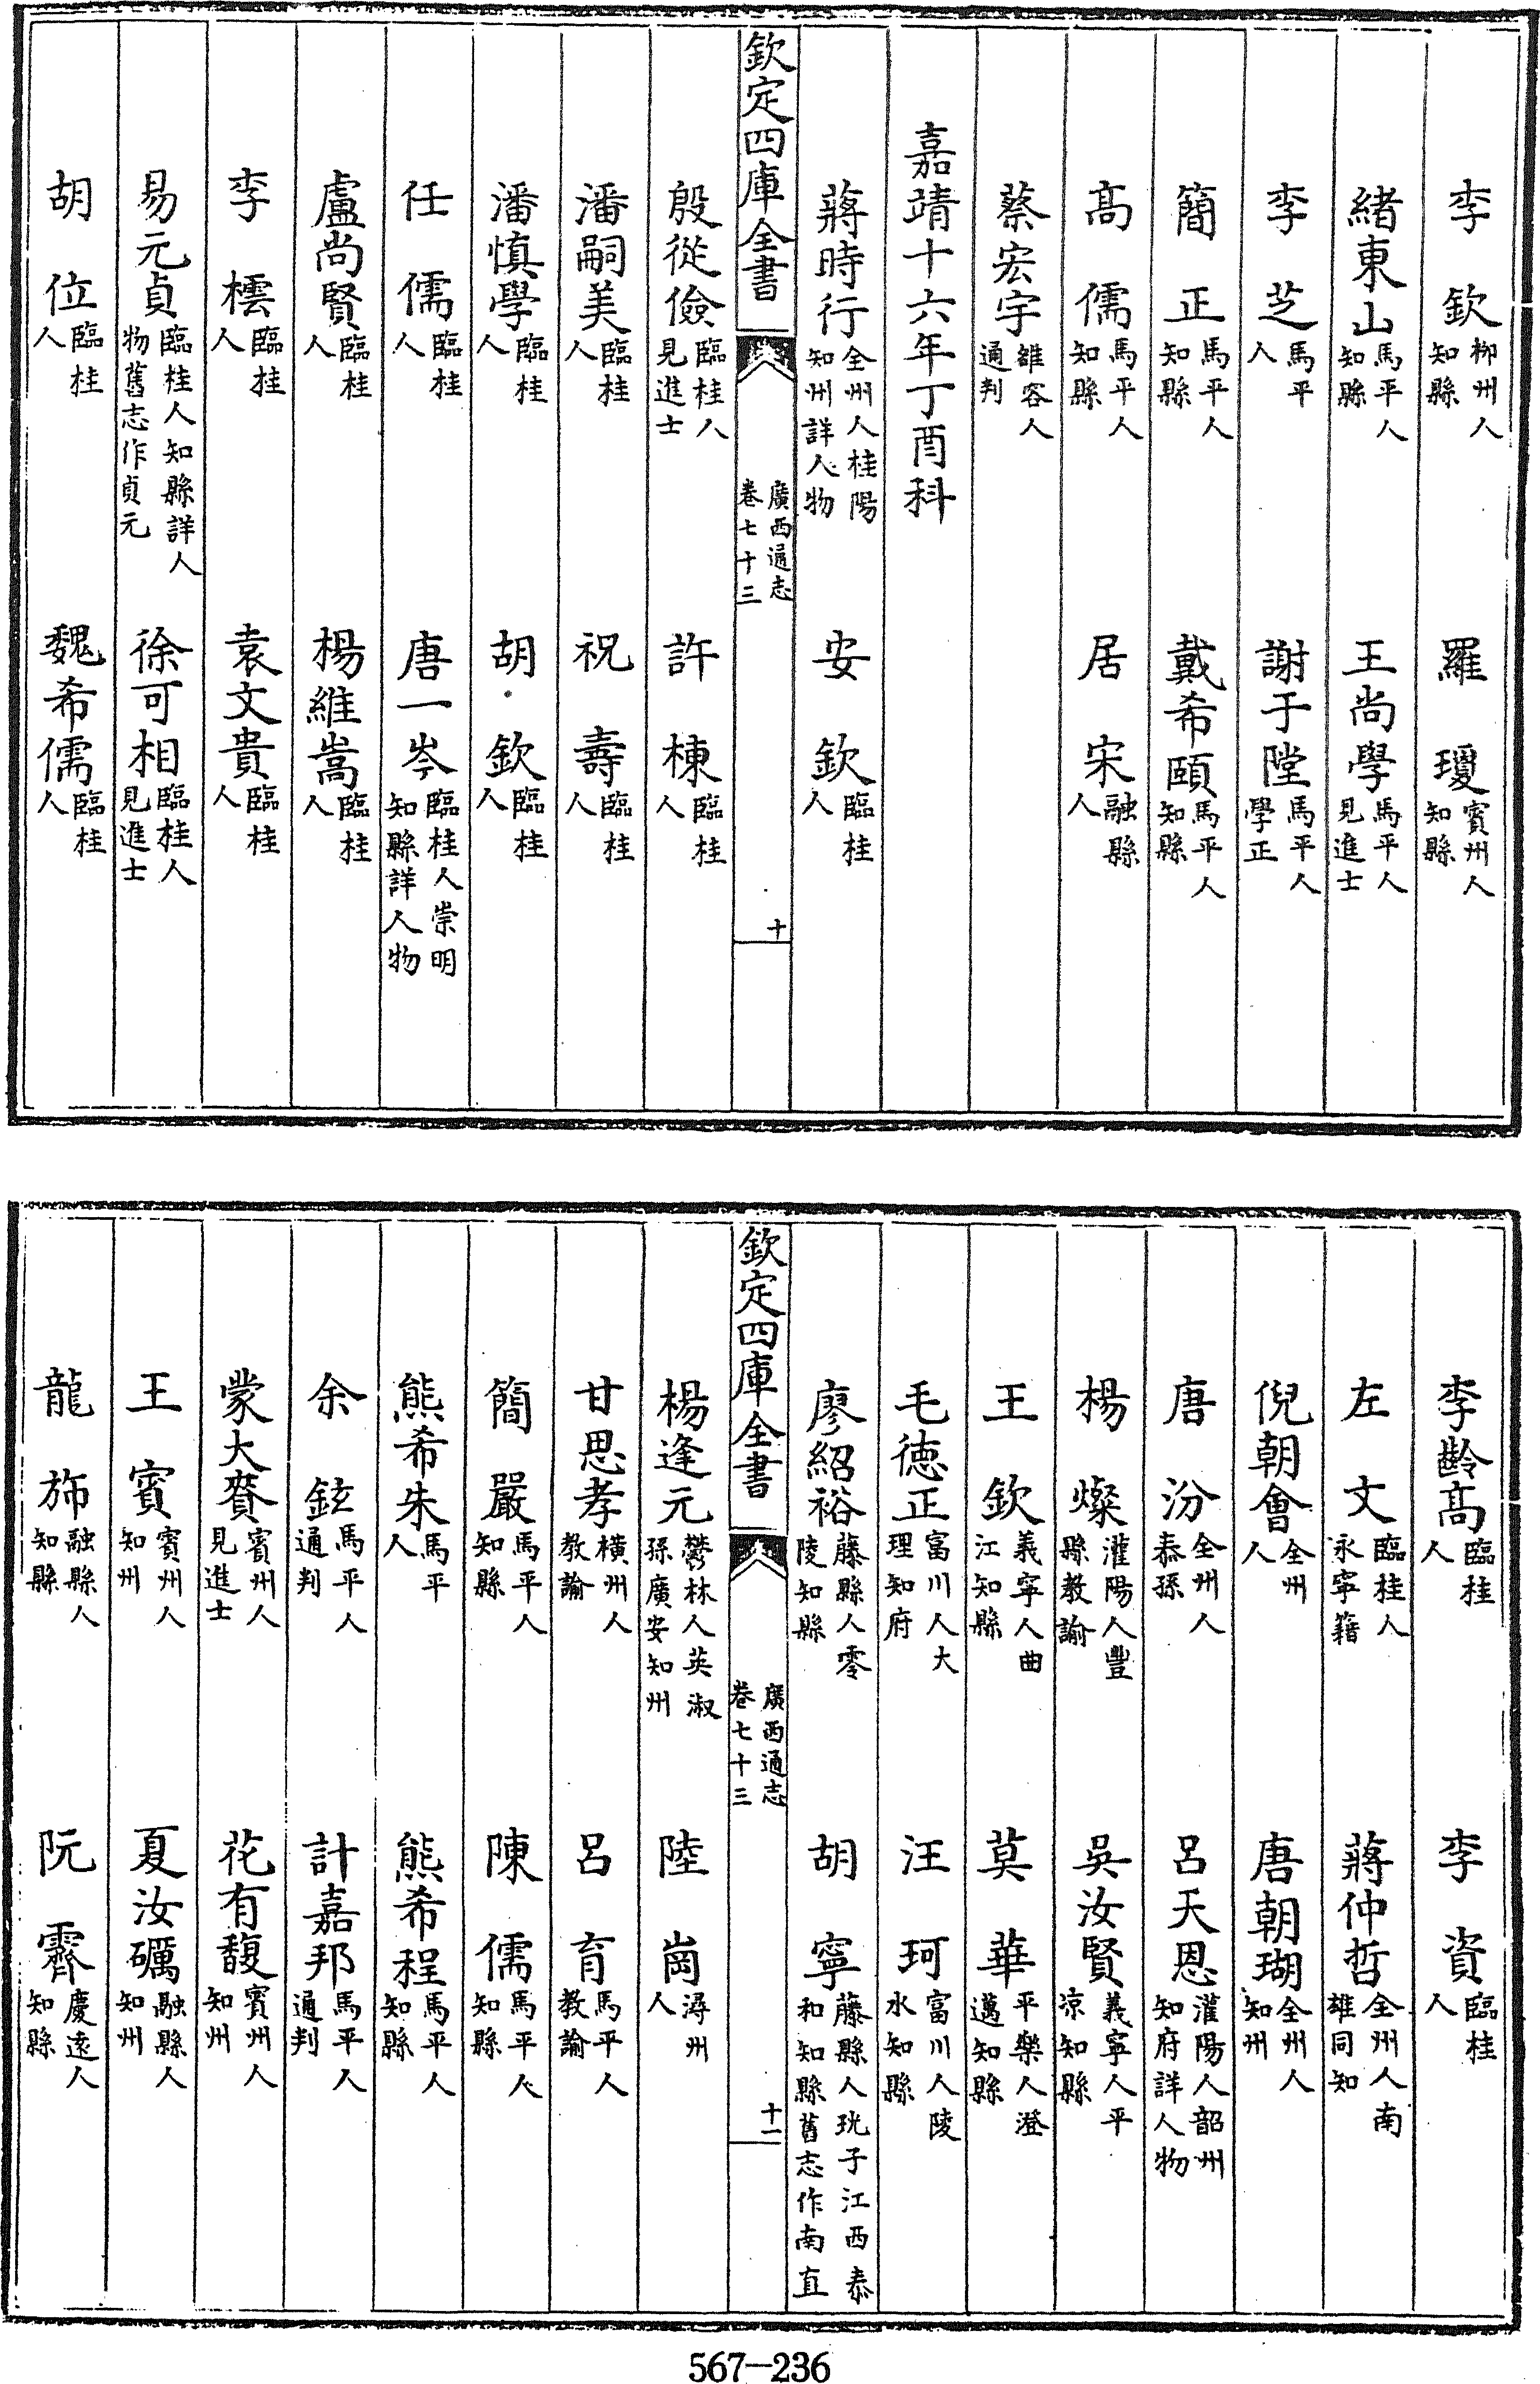 李欽柳州人知縣　羅瓊賓州人知縣
緒東山馬平人知縣　王尚學馬平人見進士
李芝馬平人　謝于陞馬平人學正
簡正馬平人知縣　戴希頤馬平人知縣
髙儒馬平人知縣　居宋融縣人
蔡宏宇雒容人通判
嘉靖十六年丁酉科
蔣時行全州人桂陽知州詳人物　安欽臨桂人
欽定四庫全書　廣西通志卷七十三　十
殷從儉臨桂人見進士　許棟臨桂人
潘嗣美臨桂人　祝壽臨桂人
潘慎學臨桂人　胡欽臨桂人
任儒臨桂人　唐一岑臨桂人崇明知縣詳人物
盧尚賢臨桂人　楊維嵩臨桂人
李橒臨桂人　袁文貴臨桂人
易元貞臨桂人知縣詳人物舊志作貞元　徐可相臨桂人見進士
胡位臨桂人　魏希儒臨桂人
李齡髙臨桂人　李資臨桂人
左文臨桂人永寧籍　蔣仲哲全州人南雄同知
倪朝會全州人　唐朝瑚全州人知州
唐汾全州人泰孫　呂天恩灌陽人韶州知府詳人物
楊燦灌陽人豐縣教諭　吳汝賢義寧人平凉知縣
王欽義寧人曲江知縣　莫華平樂人澄邁知縣
毛徳正富川人大理知府　汪珂富川人陵水知縣
廖紹裕藤縣人零陵知縣　胡寧藤縣人珖子江西泰和知縣舊志作南直
欽定四庫全書　廣西通志卷七十三　十一
楊逢元鬱林人英淑孫廣安知州　陸崗潯州人
甘思孝橫州人教諭　呂育馬平人教諭
簡嚴馬平人知縣　陳儒馬平人知縣
熊希朱馬平人　熊希程馬平人知縣
余鉉馬平人通判　計嘉邦馬平人通判
蒙大賚賓州人見進士　花有馥賓州人知州
王賓賓州人知州　夏汝礪融縣人知州
龍斾融縣人知縣　阮霽慶遠人知縣
567—236